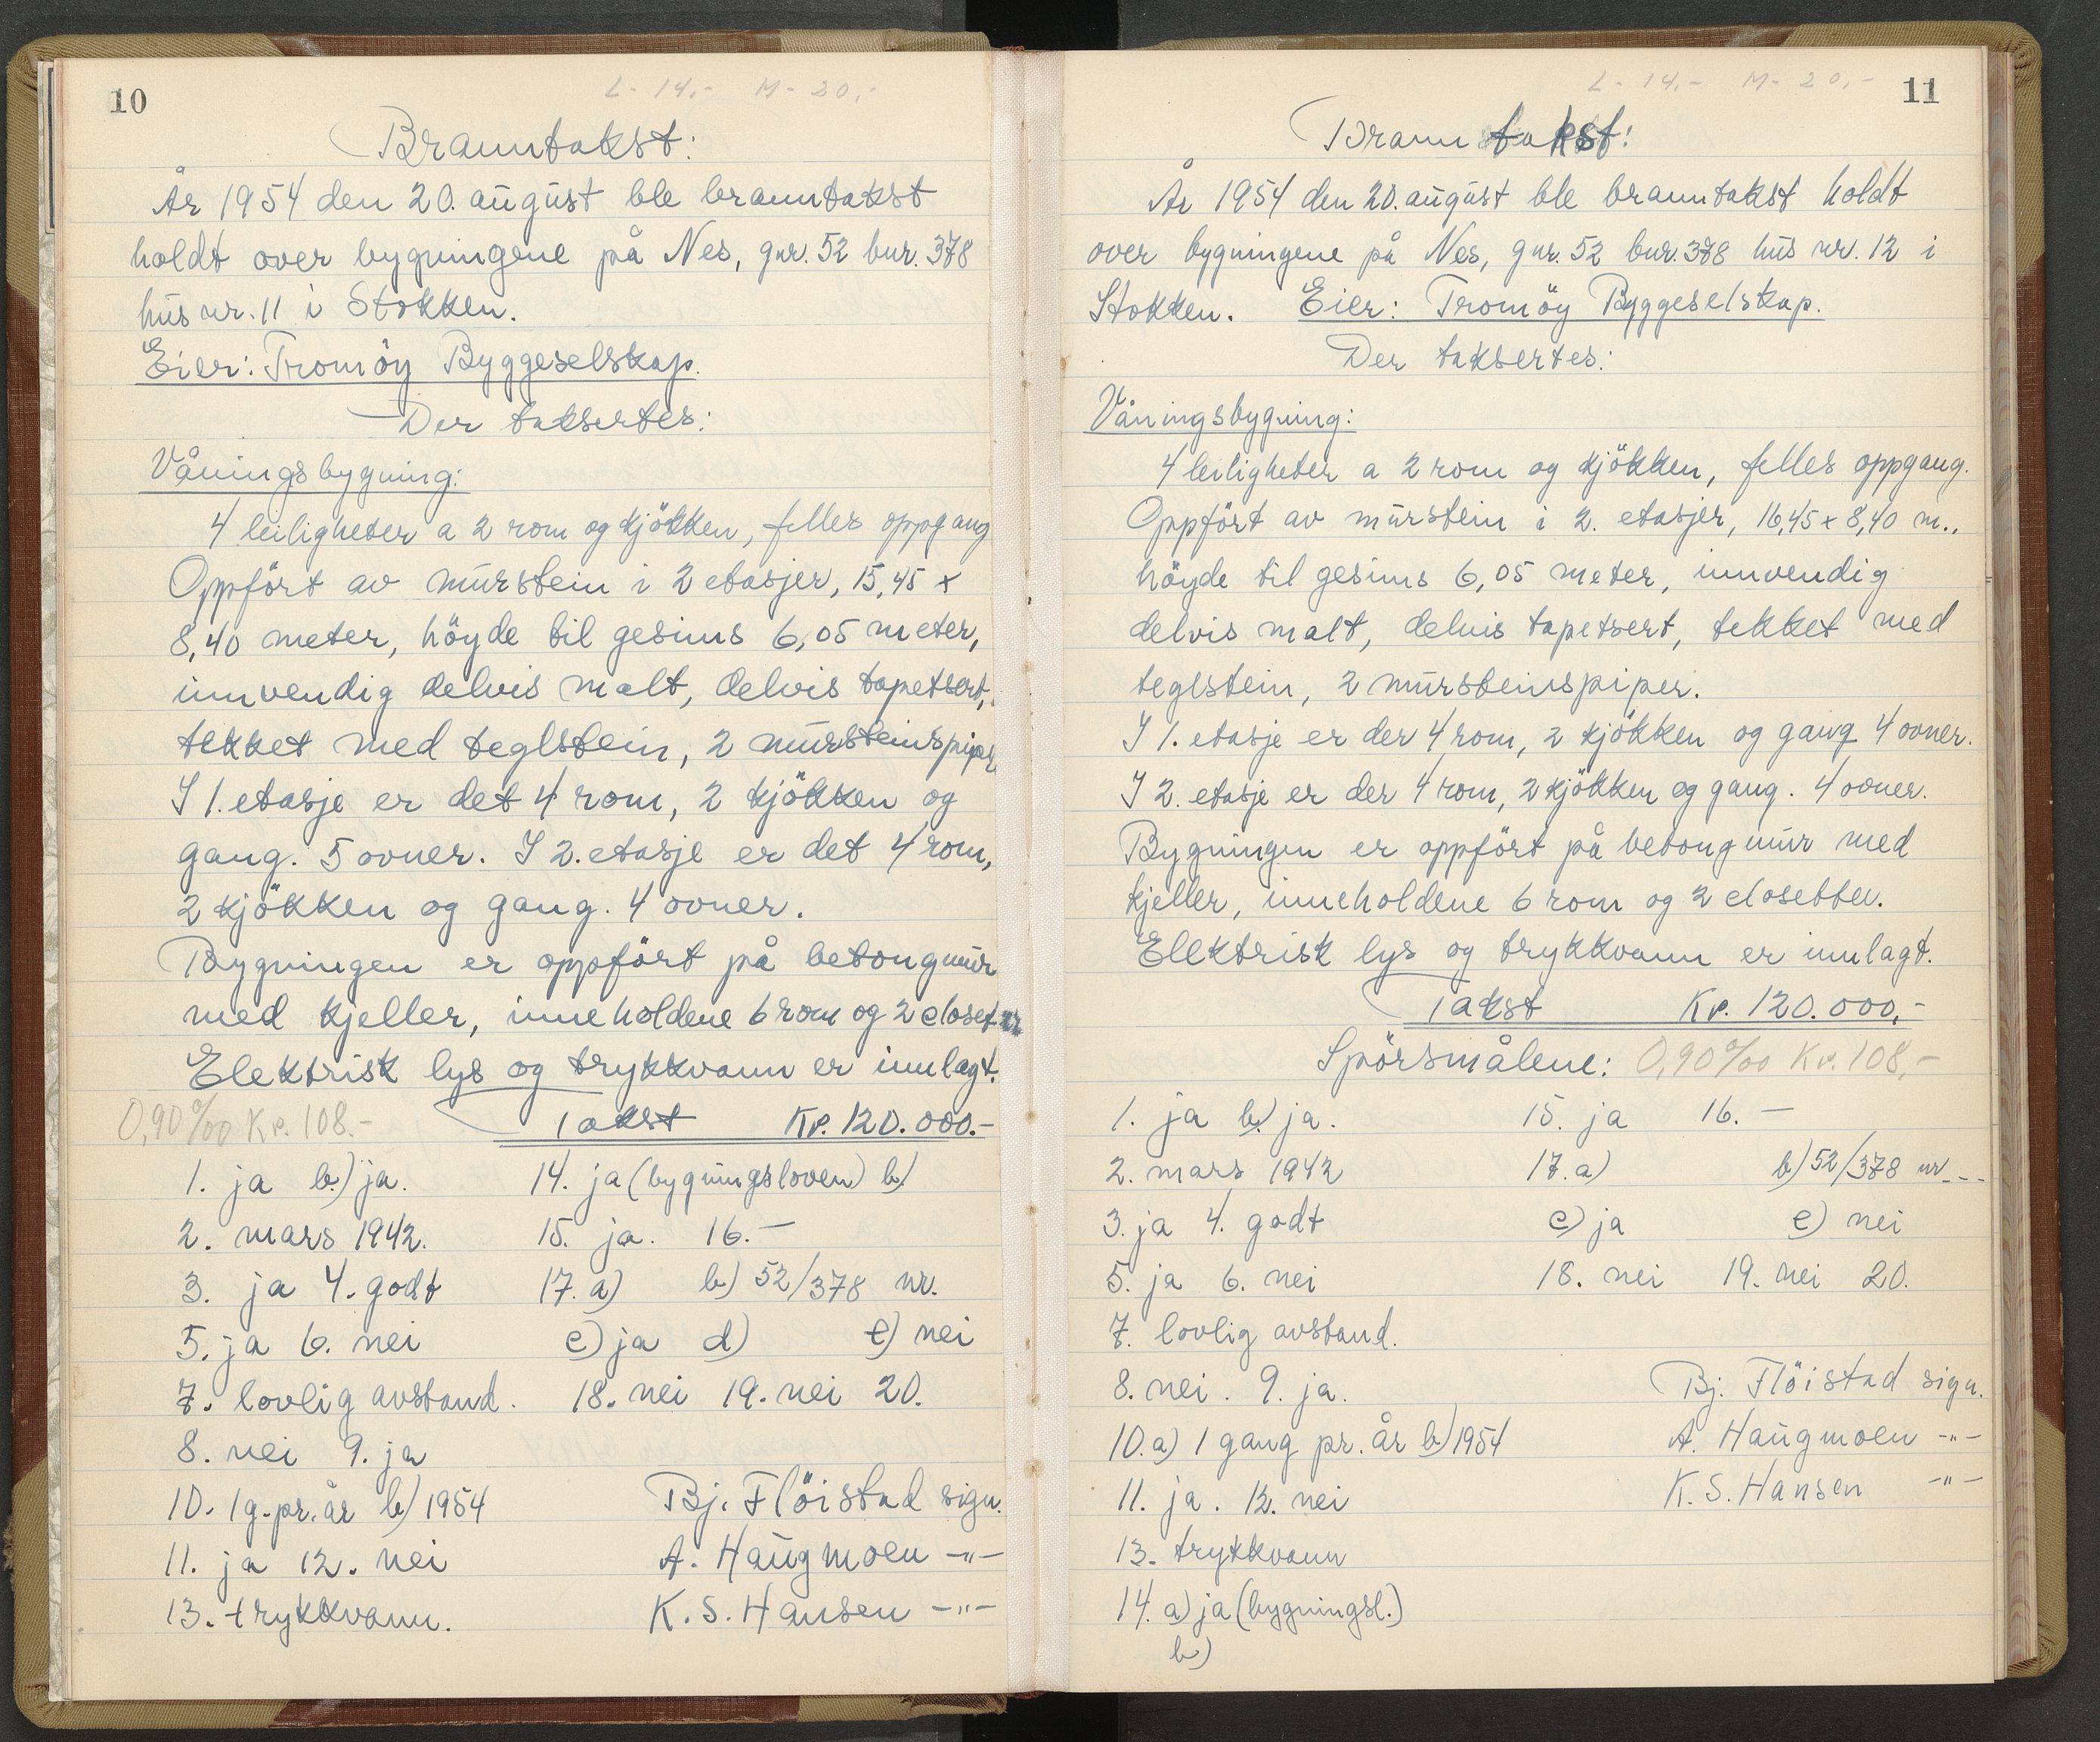 10
L- 14,- M- 20,-
Branntakst:
År 1954 den 20. august ble branntakst
holdt over bygningene på Nes, gnr. 52 bnr. 378
hus nr. 11 i Stokken.
Eier: Tromöy Byggeselskap.
Der taksertes:
Våningsbygning:
4 leiligheter a 2 rom og kjökken, felles oppgang
Oppfört av murstein i 2 etasjer, 15,45 x
8,40 meter, höyde til gesims 6,05 meter,
innvendig delvis malt, delvis tapetsert,
tekket med teglstein, 2 mursteinspiper
I 1. etasje er det 4 rom, 2 kjökken og
gang. 5 ovner. I 2. etasje er det 4 rom,
2 kjökken og gang. 4 ovner.
Bygningen er oppfört på betongmur
med kjeller, inneholdene 6 rom og 2 closetter
Elektrisk lys og trykkvann er innlagt.
0,90‰ Kr. 108.- Takst Kr. 120.000.-
1. ja b.) ja. 14. ja (bygningsloven) b)
2. mars 1942. 15. ja. 16. —
3. ja 4. godt 17. a) b) 52/378 nr.
5. ja 6. nei c) ja d) e) nei
7. lovlig avstand. 18. nei 19. nei 20.
8. nei 9. ja
10. 1 g. pr. år b) 1954 Bj. Flöistad sign.
11. ja 12. nei A. Haugmoen —"—
13. trykkvann. K. S. Hansen —"—
11
L- 14,- M- 20,-
Branntakst:
År 1954 den 20. august ble branntakst holdt
over bygningene på Nes, gnr. 52 bnr. 378 hus nr. 12 i
Stokken. Eier: Tromöy Byggeselskap.
Der taksertes:
Våningsbygning:
4 leiligheter a 2 rom og kjökken, felles oppgang.
Oppfört av murstein i 2. etasjer, 16,45 x 8,40 m.,
höyde til gesims 6,05 meter, innvendig
delvis malt, delvis tapetsert, tekket med
teglstein, 2 mursteinspiper.
I 1. etasje er der 4 rom, 2 kjökken og gang 4 ovner.
I 2. etasje er der 4 rom, 2 kjökken og gang. 4 ovner.
Bygningen er oppfört på betongmur med
kjeller, inneholdene 6 rom og 2 closetter.
Elektrisk lys og trykkvann er innlagt.
Takst Kr. 120.000,-
Spörsmålene: 0,90‰ Kr. 108,-
1. ja b.) ja. 15. ja 16. —
2. mars 1942 17. a) b) 52/378 nr---
3. ja 4. godt c) ja e) nei
5. ja 6. nei 18. nei 19. nei 20.
7. lovlig avstand.
8. nei. 9. ja. Bj. Flöistad sign.
10. a) 1 gang pr. år b) 1954 A. Haugmoen -"-
11. ja. 12. nei K. S. Hansen -"-
13. trykkvann
14. a) ja (bygningsl.)
b)